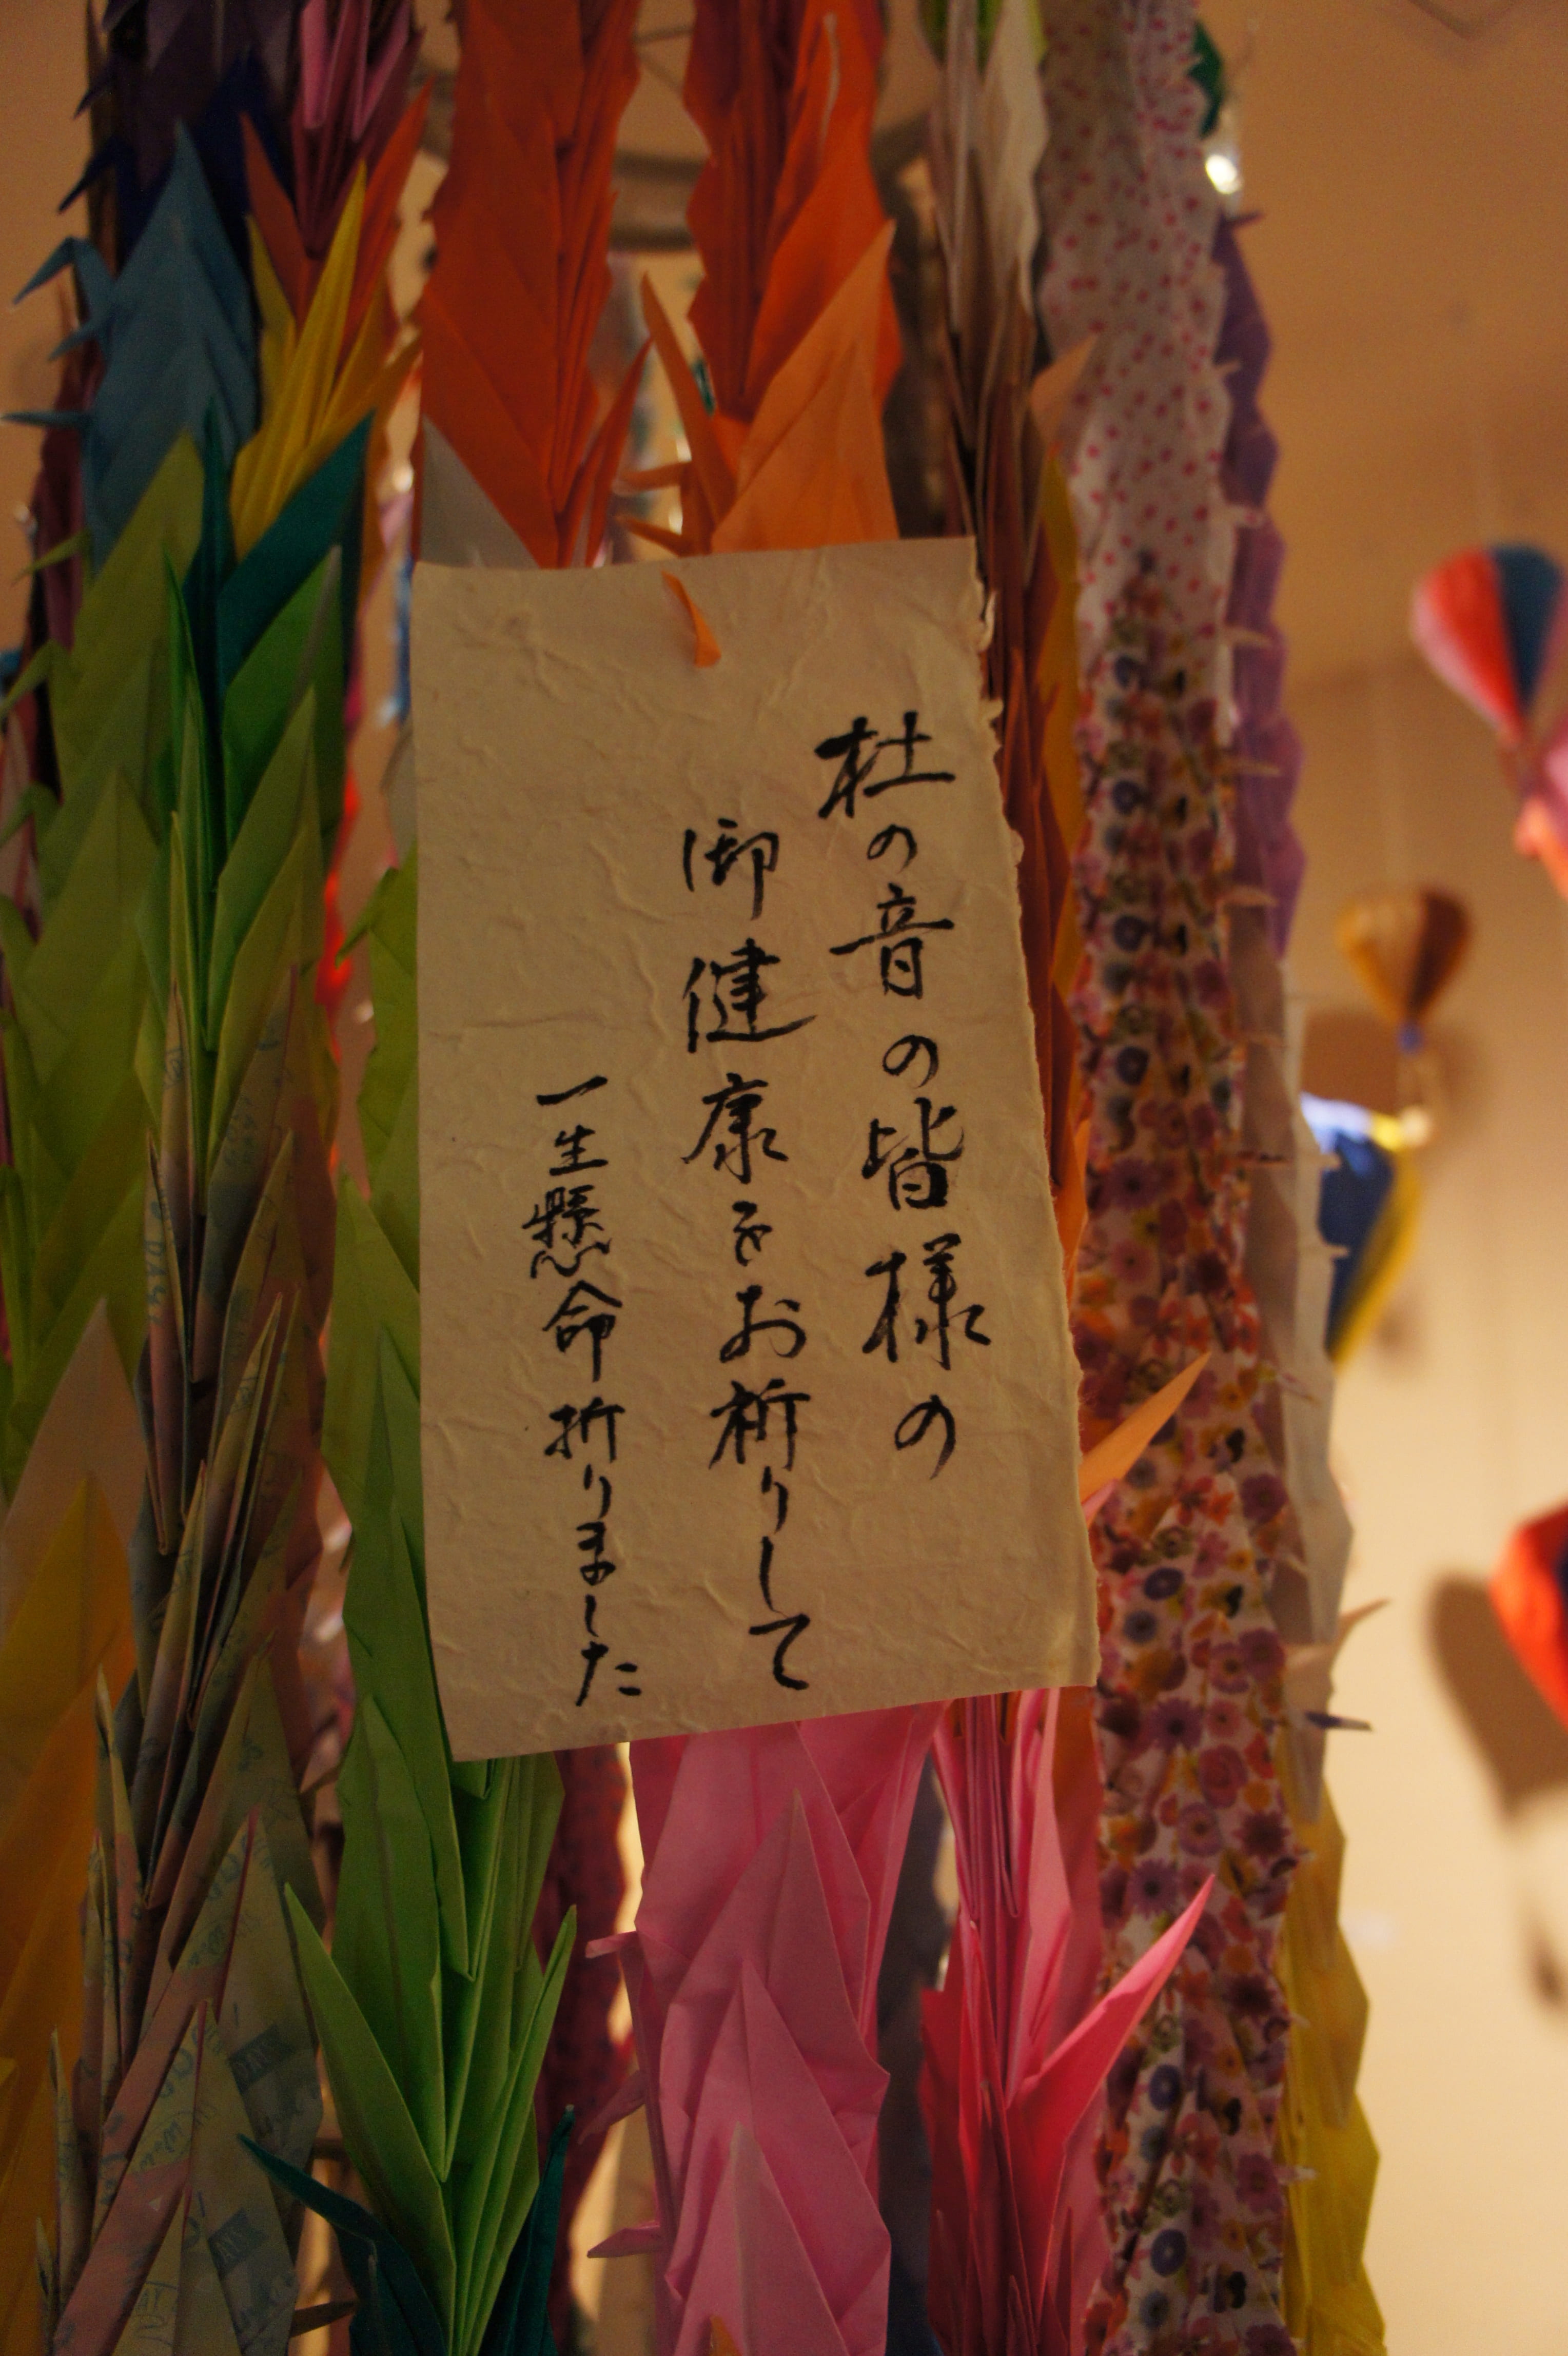 杜の音の皆様の
御健康をお祈りして
一生懸命折りました